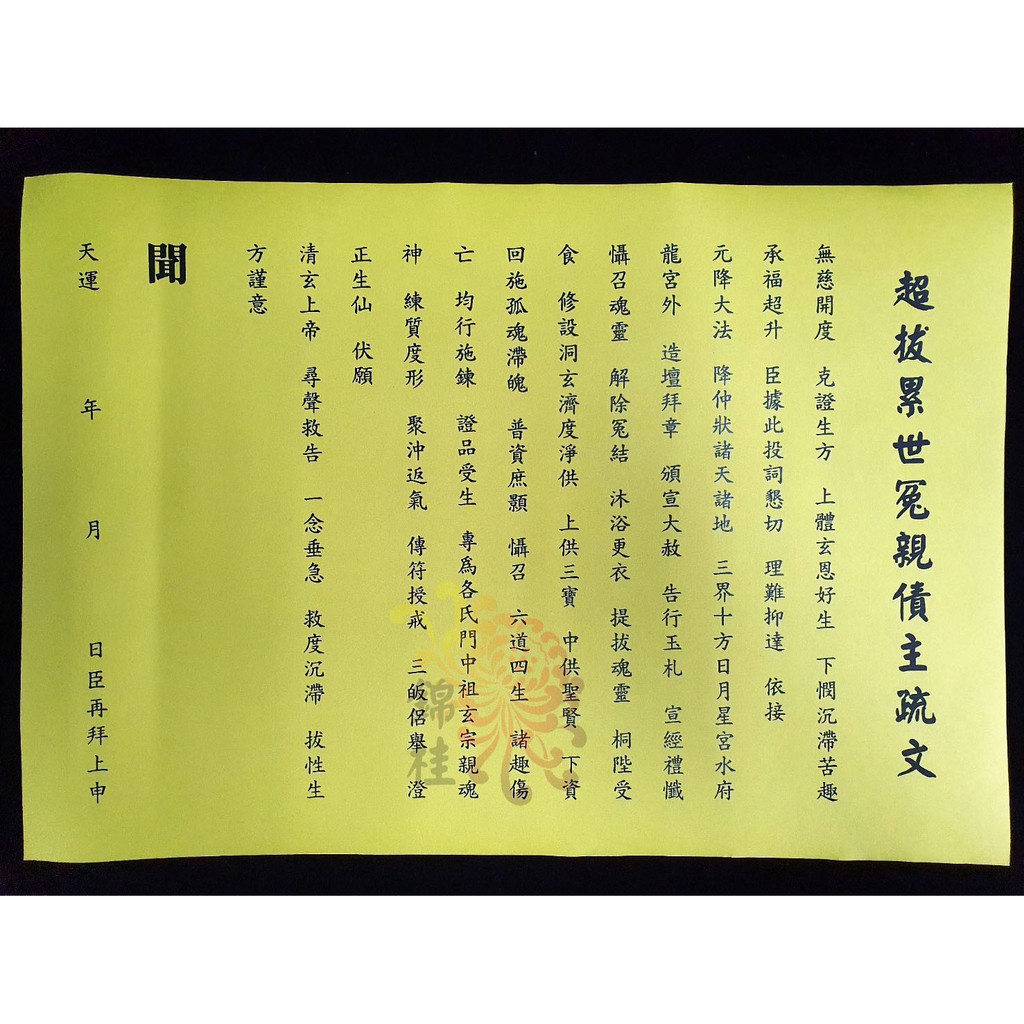 超拔累世冤親債主疏文
無慈開度 克證生方 上體玄恩好生 下憫沉滯苦趣
承福超升 臣據此投詞懇切 理難抑達 依接
元降大法 降仲狀諸天諸地 三界十方日月星宮水府
龍宮外 造壇拜章 頒宣大赦 告行玉札 宣經禮懺
懾召魂靈 解除冤結 沐浴更衣 提拔魂靈 桐陛受
食 修設洞玄濟度淨供 上供三寶 中供聖賢 下資
回施孤魂滯魄 普資庶顥 懾召 六道四生 諸趣傷
亡 均行施鍊 證品受生 專為各氏門中祖玄宗親魂
神 練質度形 聚沖返氣 傳符授戒 三皈侶舉 澄
正生仙 伏願
清玄上帝 尋聲救告 一念垂急 救度沉滯 拔性生
方謹意
聞
天運 年 月 日臣再拜上申
錦桂